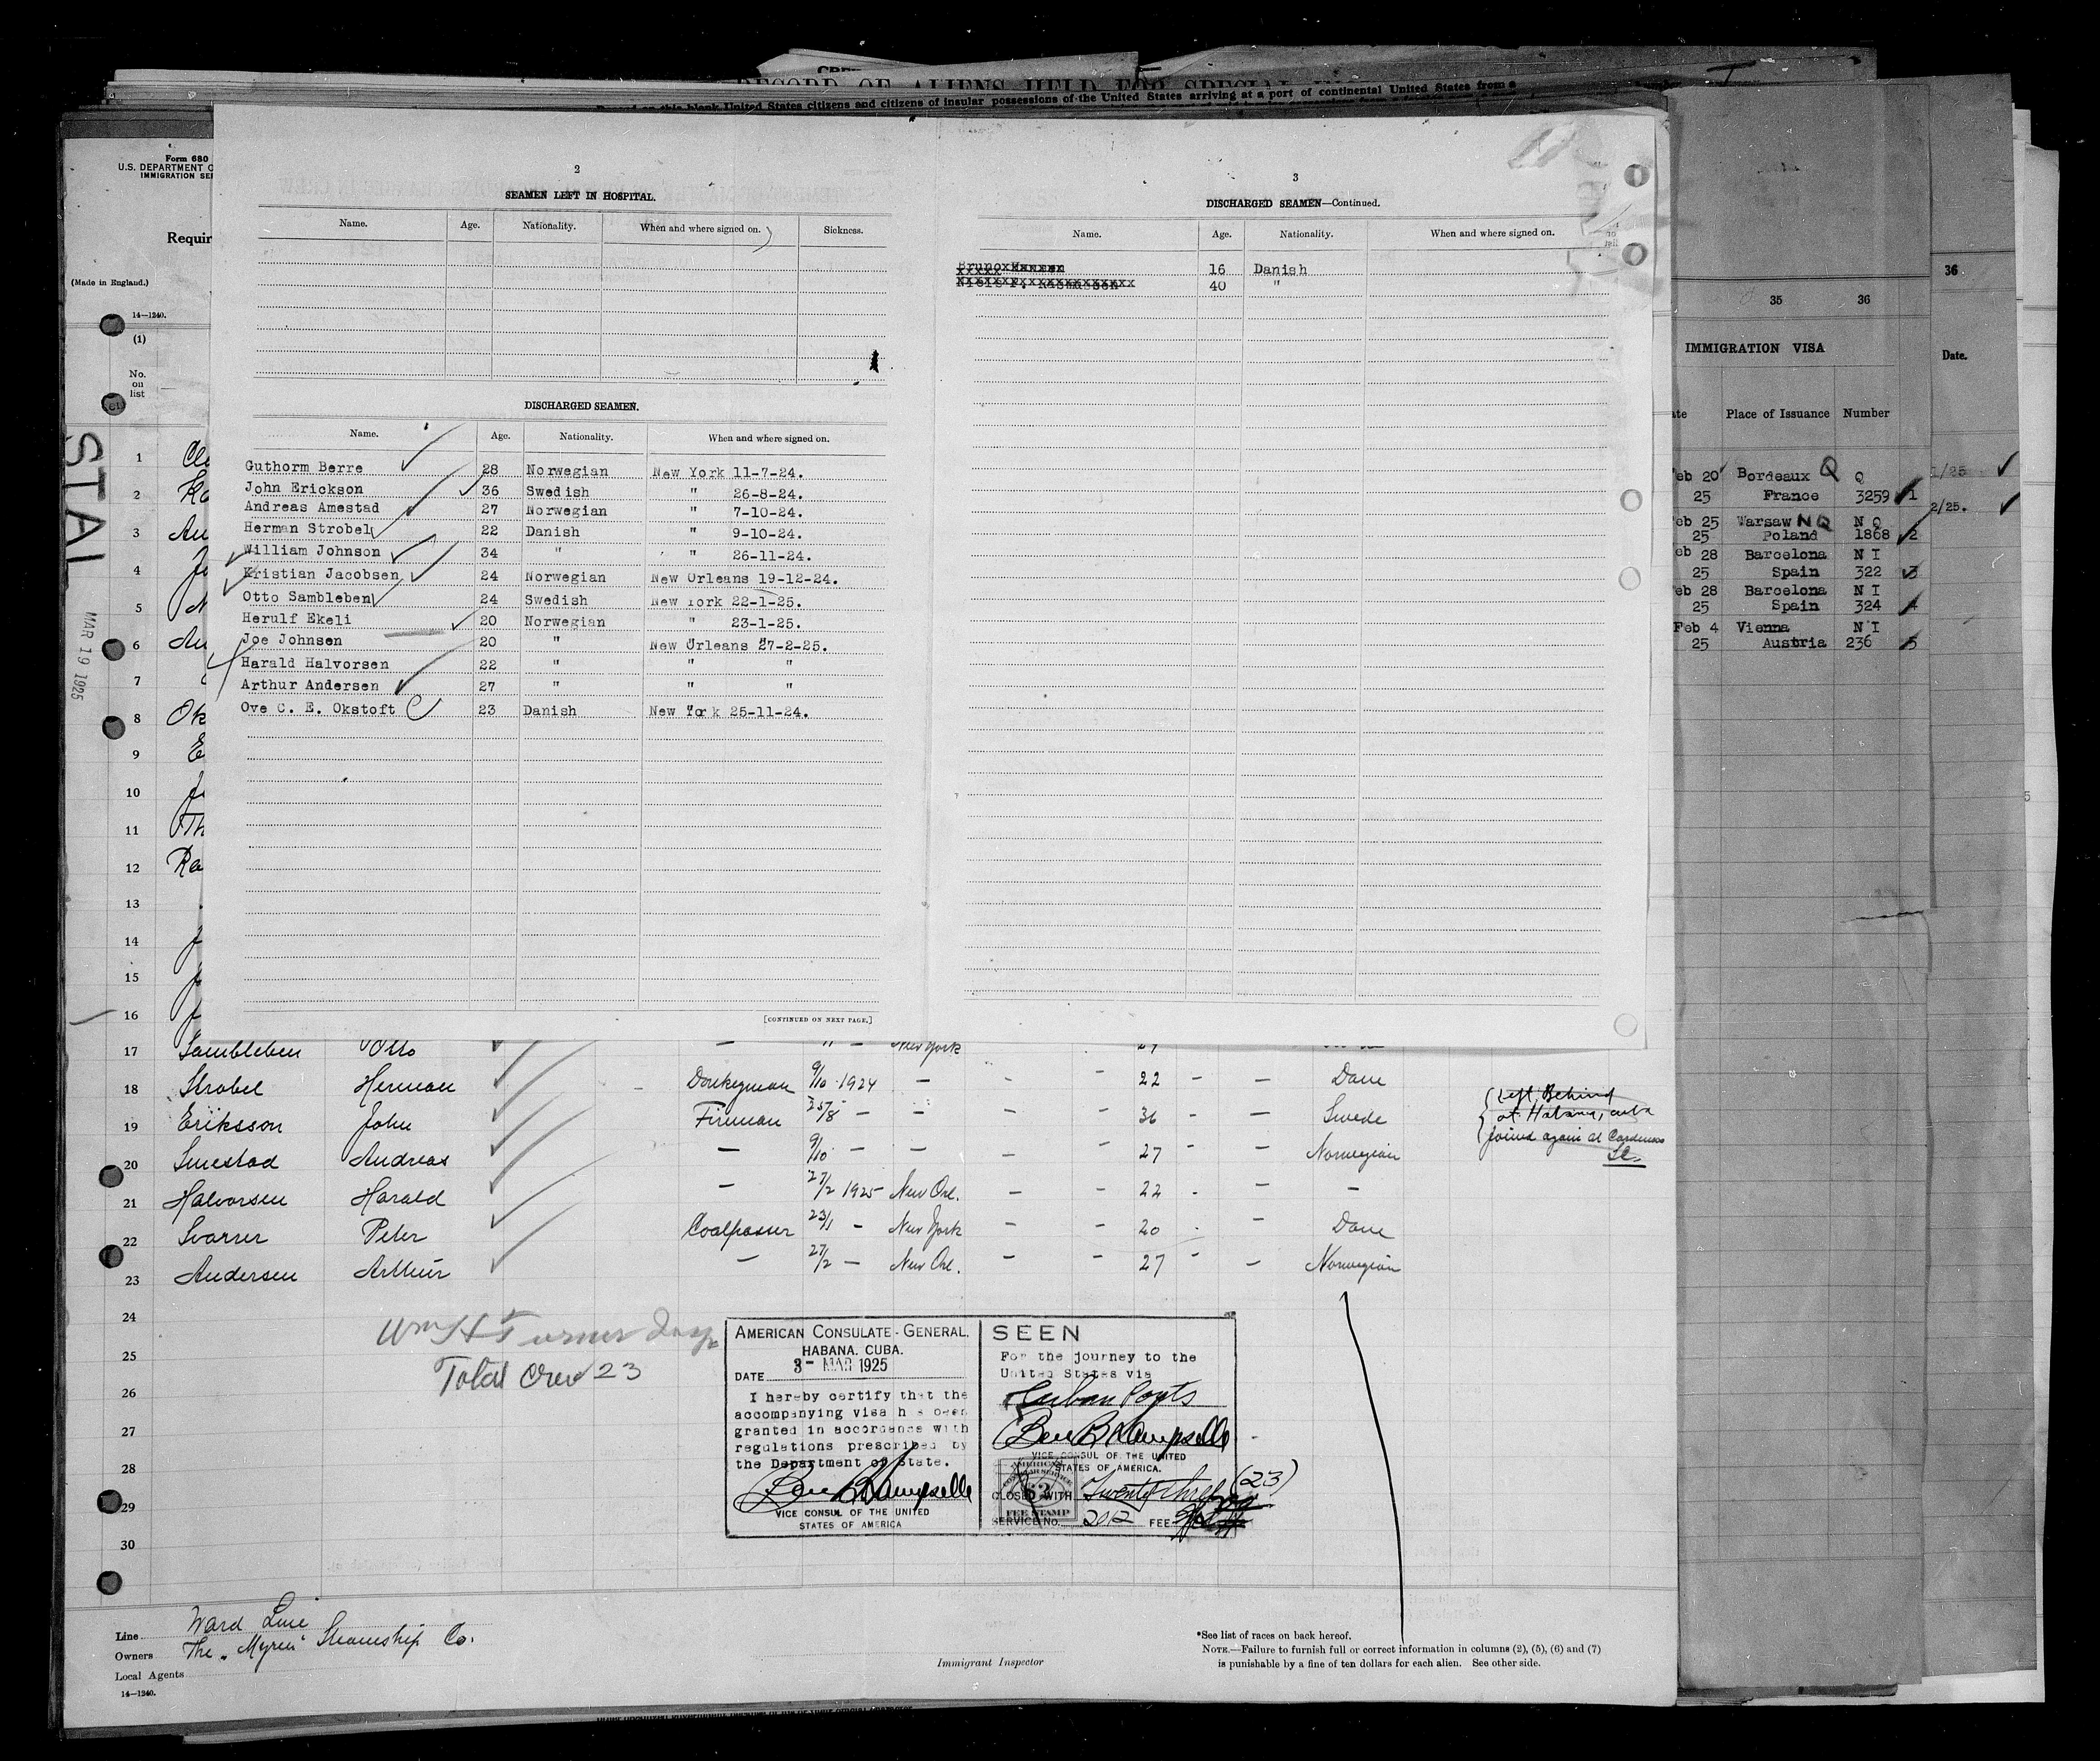 RECORD OF ALIENS HELD FOR SPECIAL
United States citizens and citizens of insular possessions of the United States arriving at a port of continental United States from a
Form 680
U.S. DEPARTMENT O
IMMIGRATION SE
Requir
(Made in England.)
14—1240.
(1)
No.
on
list
STAL
MAR 19 1925
2
SEAMEN LEFT IN HOSPITAL.
Name. Age. Nationality. When and where signed on. Sickness.
DISCHARGED SEAMEN.
Name. Age. Nationality. When and where signed on.
Guthorm Berre 28 Norwegian New York 11-7-24.
John Erickson 36 Swedish " 26-8-24.
Andreas Amestad 27 Norwegian " 7-10-24.
Herman Strobel 22 Danish " 9-10-24.
William Johnson 34 " " 26-11-24.
Kristian Jacobsen 24 Norwegian New Orleans 19-12-24.
Otto Sambleben 24 Swedish New York 22-1-25.
Herulf Ekeli 20 Norwegian " 23-1-25.
Joe Johnsen 20 " New Orleans 27-2-25.
Harald Halvorsen 22 " " "
Arthur Andersen 27 " " "
Ove C. E. Okstoft 23 Danish New York 25-11-24.
[CONTINUED ON NEXT PAGE.]
3
DISCHARGED SEAMEN—Continued.
Name. Age. Nationality. When and where signed on.
16 Danish
40 "
35 36
36
IMMIGRATION VISA
Date.
Place of Issuance Number
Feb 20 Bordeaux Q Q
25 France 3259 1
Feb 25 Warsaw NQ N Q
25 Poland 1868 2
Feb 28 Barcelona N I
25 Spain 322 3
Feb 28 Barcelona N I
25 Spain 324 4
Feb 4 Vienna N I
25 Austria 236 5
1/25
2/25.
1
2
3 Au
4
5
6 Au
7
8 Ok
9 E
10
11 Th
12 Ra
13
14
15
16
17 Sambleben Otto — New York
18 Strobel Herman Donkeyman 9/10 1924 — - - 22 - — Dane
19 Eriksson John Fireman 25/8 — — - - 36 - — Swede
Left Behind
at Habana, cuba
joined again at Cardenas
20 Smestad Andreas — 9/10 — — — - 27 - — Norwegian
21 Halvorsen Harald — 27/2 1925 New Orl. — - 22 - — —
22 Svarrer Peter Coalpasser 23/1 - New York — - 20 - — Dane
23 Andersen Arthur — 27/2 — New Orl. — - 27 - — Norwegian
24
25
26
27
28
29
30
Total Crew 23
AMERICAN CONSULATE-GENERAL,
HABANA, CUBA.
DATE 3- MAR 1925
I hereby certify that the
accompanying visa has been
granted in accordance with
regulations prescribed by
the Department of State.
VICE CONSUL OF THE UNITED
STATES OF AMERICA
SEEN
For the journey to the
United States via
Cuban Ports
VICE CONSUL OF THE UNITED
STATES OF AMERICA.
CLOSED WITH Twenty three (23)
FEE STAMP
SERVICE No. 2012 FEE
Line Ward Line
Owners The "Myren" Steamship Co.
Local Agents
14—1240.
Immigrant Inspector
*See list of races on back hereof.
NOTE.—Failure to furnish full or correct information in columns (2), (5), (6) and (7)
is punishable by a fine of ten dollars for each alien. See other side.